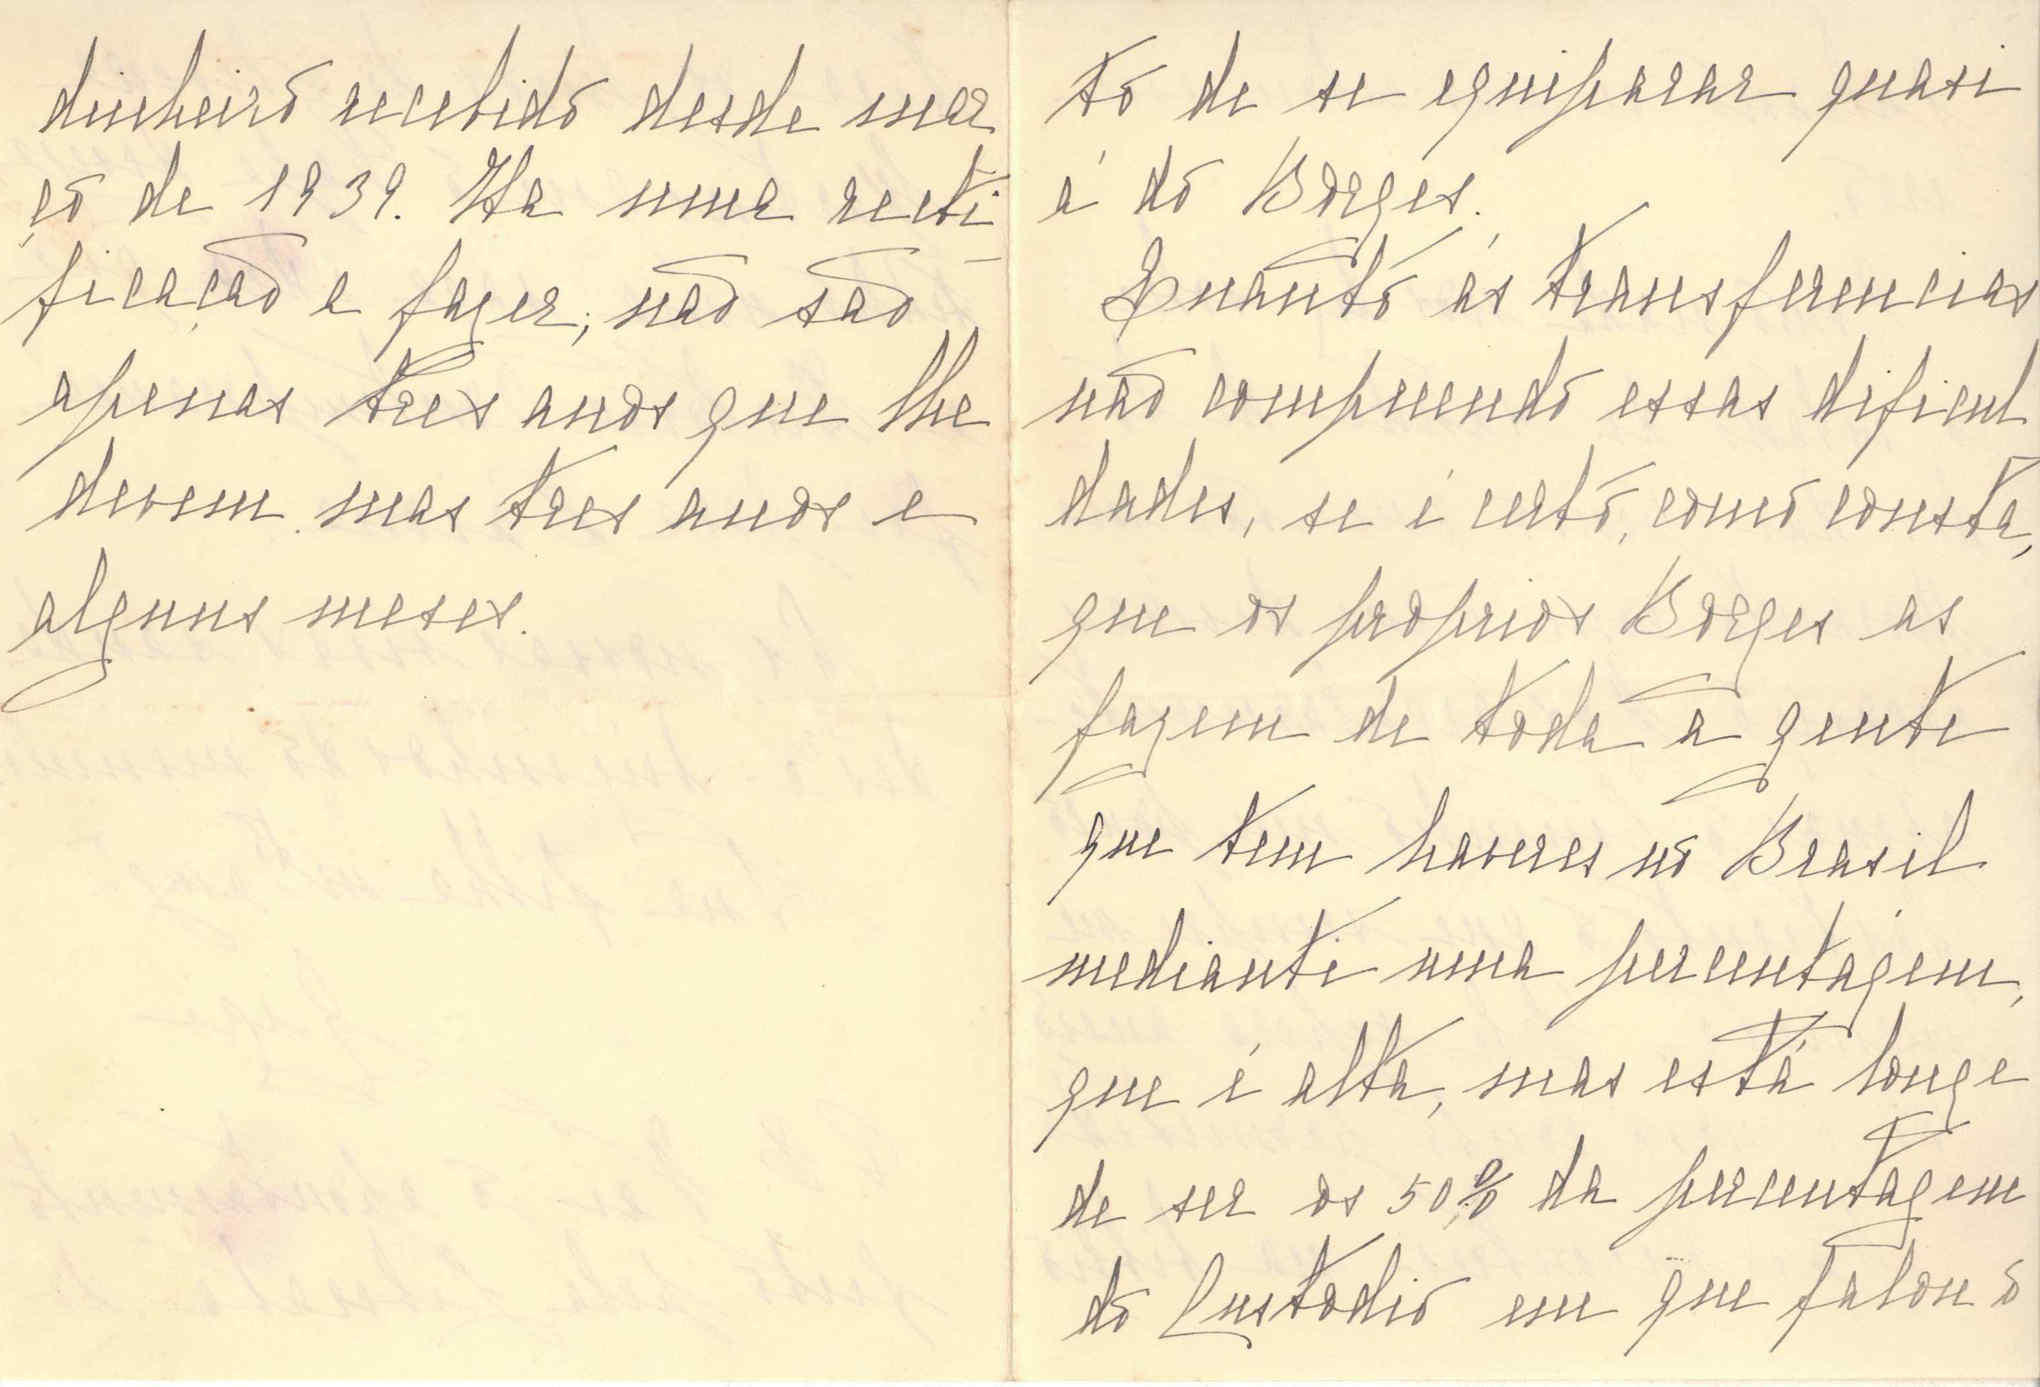 dinheiro recebido desde mar
ço de 1939. Ha uma recti-
ficação a fazer; não são
apenas tres anos que lhe
devem mas tres anos e
alguns meses.
to de se equiparar quasi
á do Borges.
Quanto ás transferencias
não comprendo essas dificul
dades, se é certo, como consta,
que os proprios Borges as
fazem de toda a gente
que tem haveres no Brasil
mediante uma percentagem,
que é alta, mas está longe
de ser os 50% da percentagem
do Custodio em que falou o